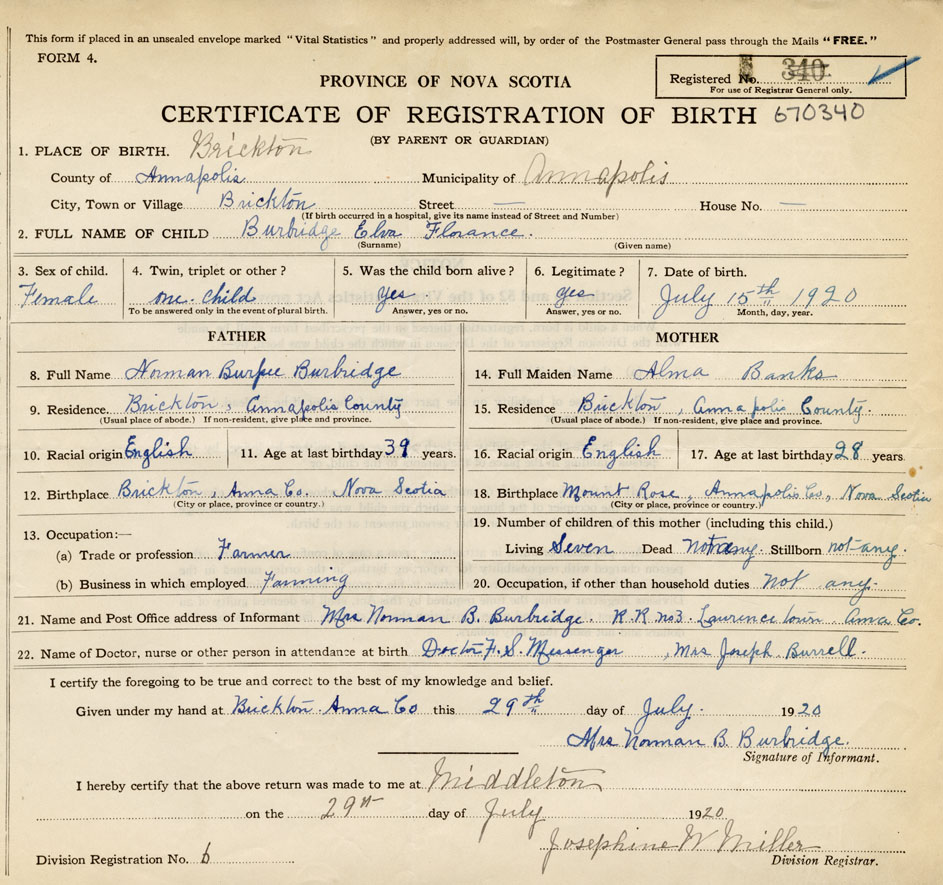 This form if placed in an unsealed envelope marked "Vital Statistics" and properly addressed will, by order of the Postmaster General pass through the Mails "FREE."
FORM 4.
PROVINCE OF NOVA SCOTIA
Registered No. 340
For use of Registrar General only.
CERTIFICATE OF REGISTRATION OF BIRTH 670340
(BY PARENT OR GUARDIAN)
1. PLACE OF BIRTH. Brickton
County of Annapolis Municipality of Annapolis
City, Town or Village Brickton Street — House No. —
(If birth occurred in a hospital, give its name instead of Street and Number)
2. FULL NAME OF CHILD Burbridge Elva Florance.
(Surname) (Given name)
3. Sex of child. 4. Twin, triplet or other? 5. Was the child born alive? 6. Legitimate? 7. Date of birth.
Female one. child yes yes July 15th 1920
To be answered only in the event of plural birth. Answer, yes or no. Answer, yes or no. Month, day, year.
FATHER MOTHER
8. Full Name Norman Burpee Burbridge 14. Full Maiden Name Alma Banks
9. Residence. Brickton, Annapolis County 15. Residence Brickton, Annapolis County.
(Usual place of abode.) If non-resident, give place and province. (Usual place of abode.) If non-resident, give place and province.
10. Racial origin English 11. Age at last birthday 39 years. 16. Racial origin English 17. Age at last birthday 28 years
12. Birthplace Brickton, Anna Co. Nova Scotia 18. Birthplace Mount Rose, Annapolis Co, Nova Scotia
(City or place, province or country.) (City or place, province or country.)
13. Occupation:— 19. Number of children of this mother (including this child.)
(a) Trade or profession Farmer Living Seven Dead Not any. Stillborn not any.
(b) Business in which employed Farming 20. Occupation, if other than household duties Not any.
21. Name and Post Office address of Informant Mrs Norman B. Burbridge. R.R no3 Laurence town Anna Co.
22. Name of Doctor, nurse or other person in attendance at birth Doctor F. S. Messenger, Mrs Joseph Burrell.
I certify the foregoing to be true and correct to the best of my knowledge and belief.
Given under my hand at Brickton. Anna Co this 29th day of July. 1920
Mrs Norman B. Burbridge.
Signature of Informant.
I hereby certify that the above return was made to me at Middleton
on the 29th day of July 1920
Josephine W Miller
Division Registration No. 6 Division Registrar.